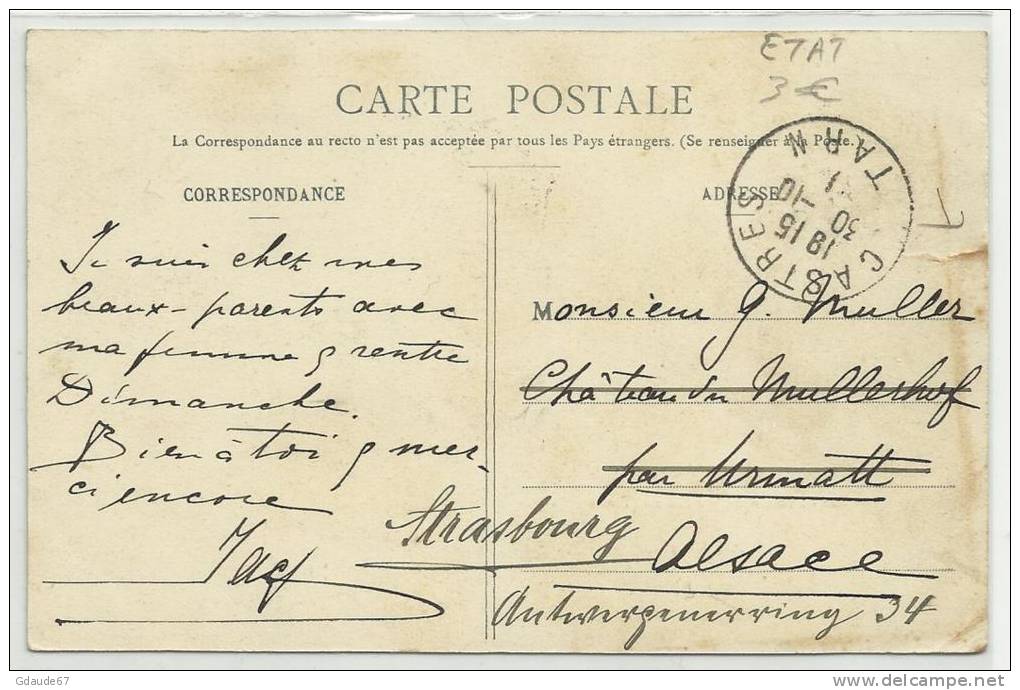 ETAT
3 €
CARTE POSTALE
La Correspondance au recto n'est pas acceptée par tous les Pays étrangers. (Se renseigner à la Poste.)
CORRESPONDANCE
ADRESSE
CASTRES
TARN
18 15
30 -10
Je suis chez mes
beaux-parents avec
ma femme & rentre
Dimanche.
Bien à toi & mer-
ci encore
Monsieur G. Muller
Château du Mullerhof
par Urmatt
Strasbourg
Alsace
Antwerpenerring 34
Gdaude67
delcampe.net